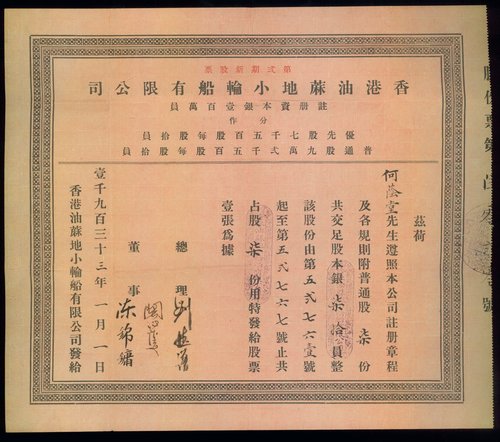 第弍期新股票
香港油蔴地小輪船有限公司
註册資本銀壹百萬員
分作
優先股七千五百股每股拾員
普通股九萬弍千五百股每股拾員
茲荷
何蔭堂先生遵照本公司註册章程
及各規則附普通股柒份
共交足股本銀柒拾員整
該股份由第五弍七六壹號
起至第五弍七六七號止共
占股柒份用特發給股票
壹張爲據
總理
董事
陳錦鏞
壹千九百三十三年一月一日
香港油蔴地小輪船有限公司發給